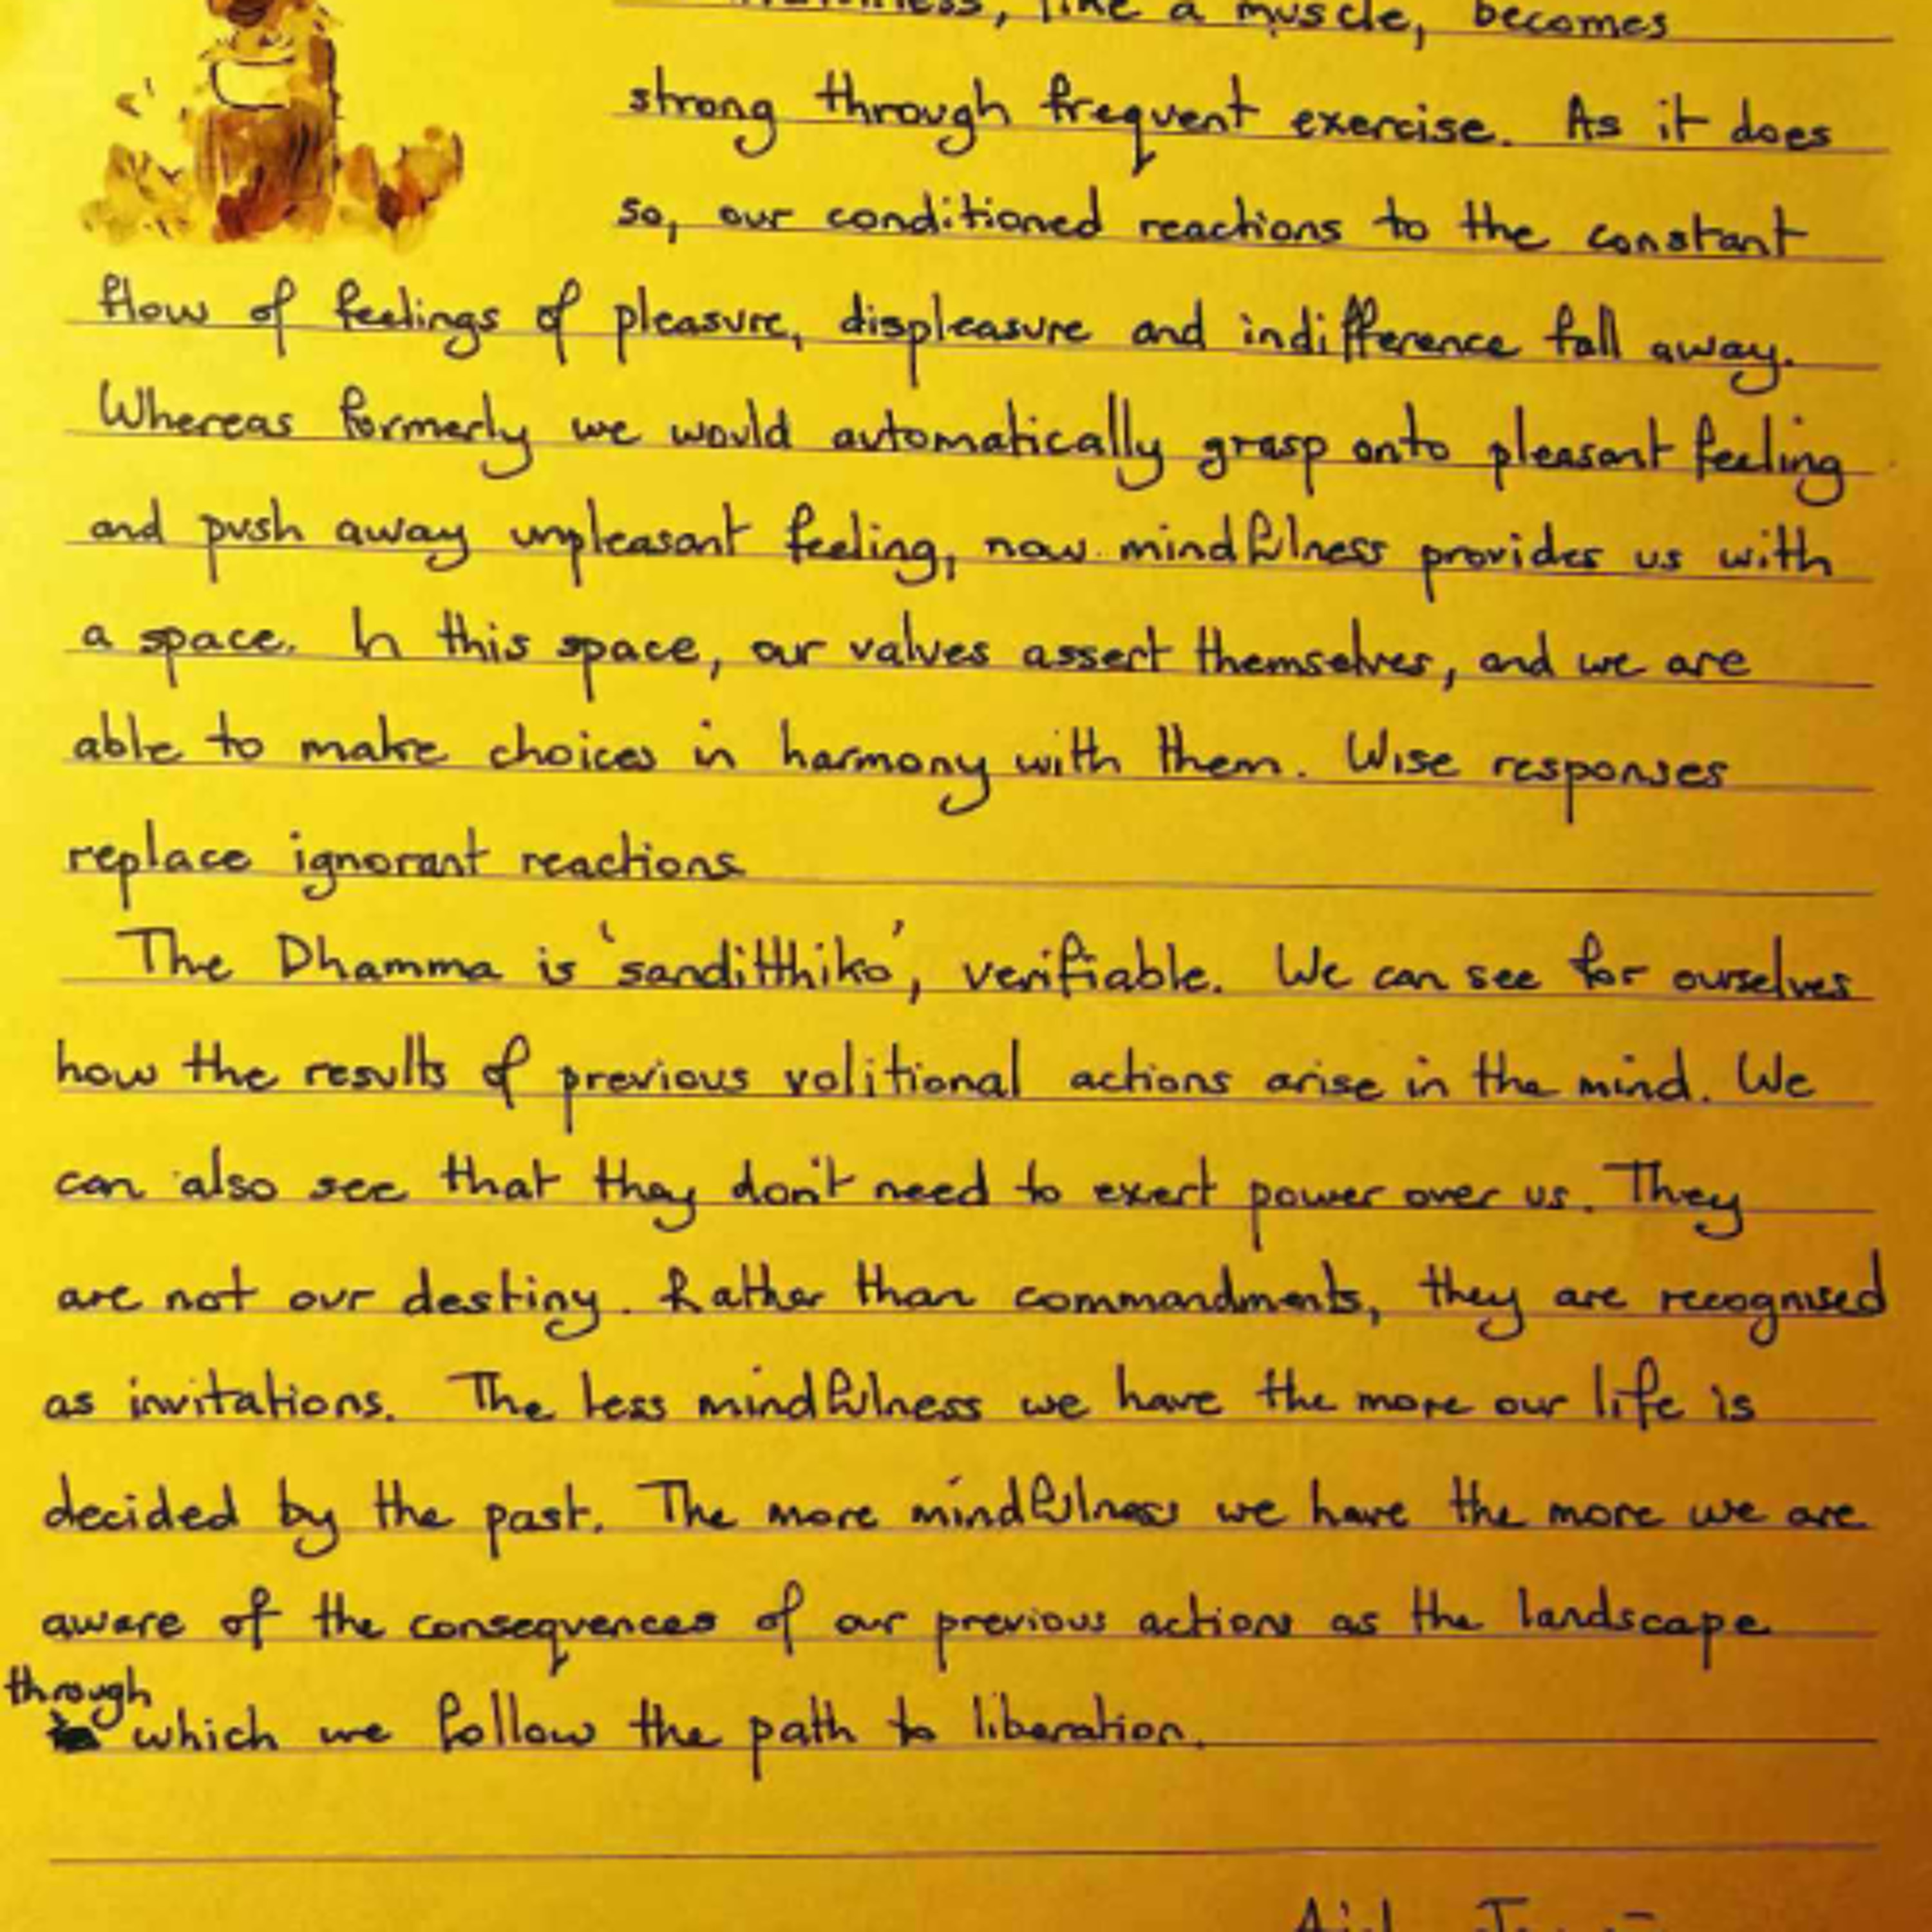 like a muscle, becomes
strong through frequent exercise. As it does
so, our conditioned reactions to the constant
flow of feelings of pleasure, displeasure and indifference fall away.
Whereas formerly we would automatically grasp onto pleasant feeling
and push away unpleasant feeling, now mindfulness provides us with
a space. In this space, our values assert themselves, and we are
able to make choices in harmony with them. Wise responses
replace ignorant reactions
The Dhamma is 'sanditthiko', verifiable. We can see for ourselves
how the results of previous volitional actions arise in the mind. We
can also see that they don't need to exert power over us. They
are not our destiny. Rather than commandments, they are recognised
as invitations. The less mindfulness we have the more our life is
decided by the past. The more mindfulness we have the more we are
aware of the consequences of our previous actions as the landscape
through
which we follow the path to liberation.